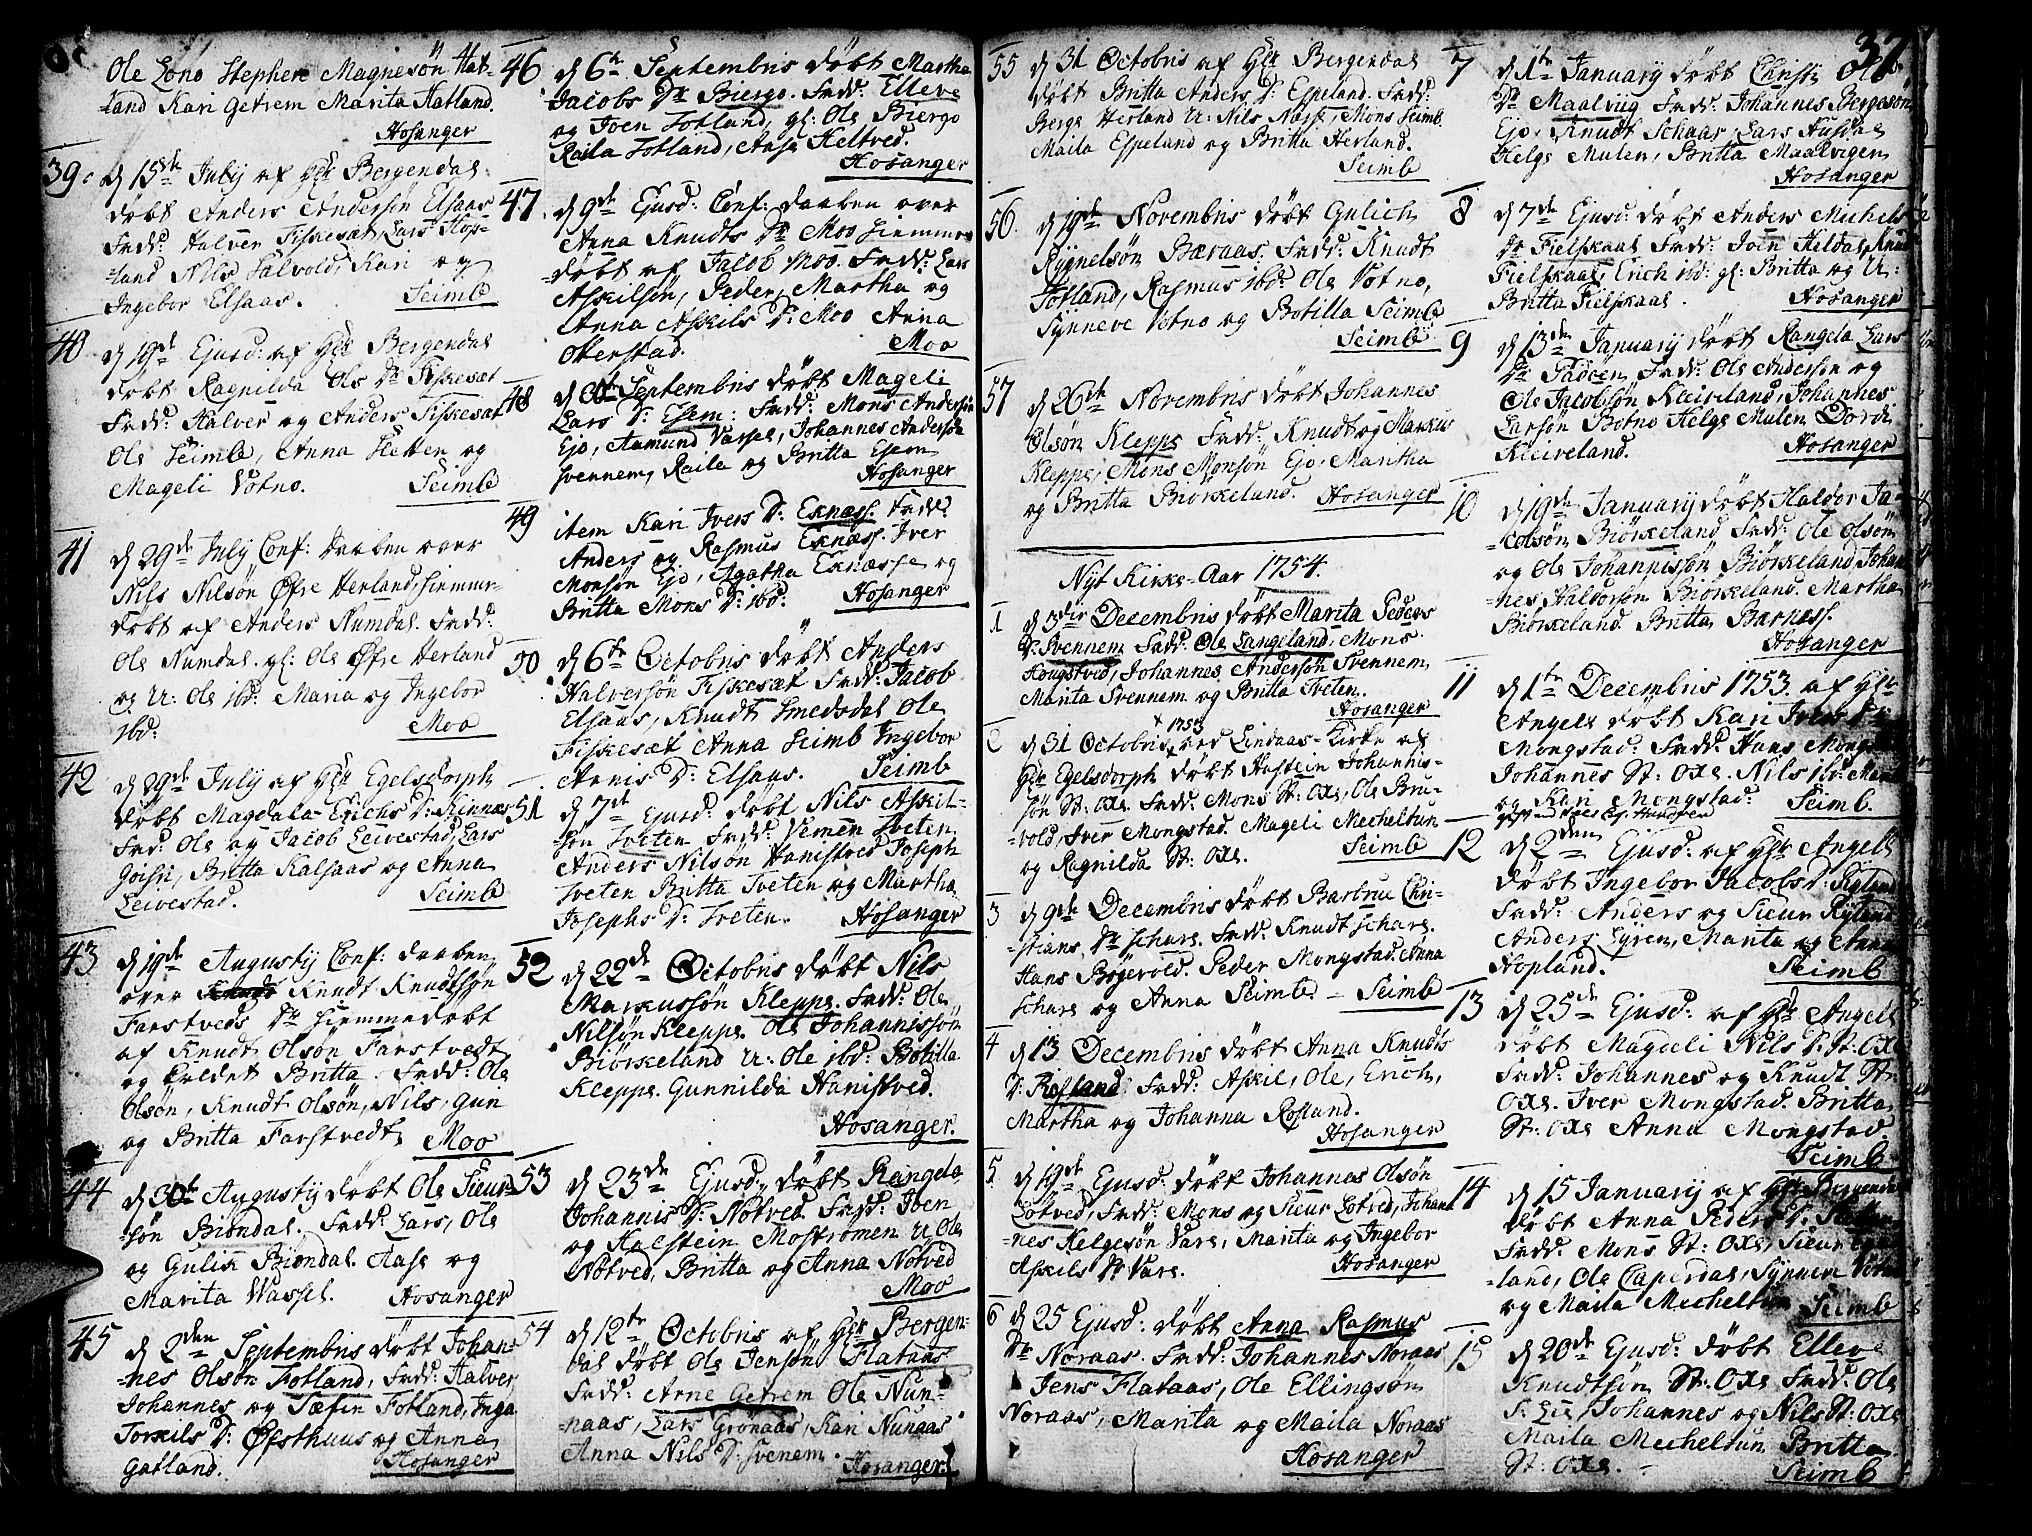 Ole Lono Stephen Magnesøn Hat-
-land Kari Getrem Marita Hatland.
Hosanger
39. d 15de July af Hr Bergendal
døbt Anders Andersøn Elsaas
Fadd: Halver Fiskesæt, Lars Hop-
-land Nils Kari og
Ingebor Elsaas. Seimb
40 d 19de Ejusd: af Hr Bergendal
døbt Ragnilda Ols Dr Fiskesæt
Fadd: Halver og Anders Fiskesæt
Ole Seimb, Anna Sletten og
Mageli Votno. Seimb
41 d 29de July Conf: daaben over
Nils Nilsøn Øfre Herland, hiemme-
døbt af Anders Numdal. Fadd:
Ole Numdal. gl: Ole Øfre Herland
og U: Ole ibd: Maria og Ingebor
ibd: Moo
42 d 29de July af Hr Egelsdorph
døbt Magdala Erichs D: Kinnæs
Fad: Ole og Jacob Leivestad, Lars
Britta Kalsaas og Anna
Leivestad. Seimb
43 d 19de Augustij Conf: daaben
over Knudt Knudtsøn
Farstveds Dr hiemmedøbt
af Knudt Olsøn Farstvedt
og kaldet Britta. Fadd: Ole
Olsøn, Knudt Olsøn, Nils, Gun
og Britta Farstvedt, Moo
44 d 30t Augustij døbt Ole Sieur-
søn Biondal. Fadd: Lars, Ole
og Gulich Biondal. Aase og
Marita Wassel. Hosanger
45 d 2den Septembris døbt Johan-
-nes Olsøn Fotland, Fadd: Halver,
Johannes og Fotland, Inga
Torkils D: Øfsthuus og Anna
Gatland. Hosanger
46 d 6te Septembris døbt Martha
Jacobs Dr Biergo. Fadd: Elleve
og Joen Totland, gl: Ole Biergo
Raila Totland, Aase Heltved.
Hosanger
47. d 9de Ejusd: Conf: daaben over
Anna Knudts Dr Moo hiemme
døbt af Jacob Moo. Fadd: Lars
Askilsøn, Peder, Martha og
Anna Askils D: Moo Anna
Okerstad. Moo
48 d Septembris døbt Mageli
Lars D: Esem: Fadd: Mons Andersøn
Ejo, Aamund Vassel, Johannes Andersøn
Svennem, Raila og Britta Esem
Hosanger
49 item Kari Ivers D: Exnæss. Fadd:
Anders og Rasmus Exnæss. Iver
Monsøn Ejo, Agatha Exnæsse og
Britta Mons D: ibd: Hosanger
50 d 6te Octobris døbt Anders
Halversøn Fiskesæt Fadd: Jacob
Elsaas, Knudt Smedsdal Ole
Fiskesæt Anna Seimb Ingebor
Arnis D: Elsaas. Seimb
51 d 7de Ejusd: døbt Nils Askil-
søn Tveten Fadd: Vemen Tveten
Anders Nilsøn Hanistved Joseph
Tveten Britta Tveten og Martha
Josephs D: Tveten. Hosanger
52 d 22de Octobris døbt Nils
Markussøn Kleppe. Fadd: Ole
Nilsøn Kleppe. Ole Johannissøn
Biørkeland U: Ole ibd: Botilla
Kleppe. Gunnilda Hanistved.
Hosanger.
53 d 23de Ejusd: døbt Rangela
Johannis D: Nøtved Fadd: Joen
og Halstein Mostrømen U: Ole
Nøtved, Britta og Anna Nøtved
Moo
54 d 12te Octobris af Hr Bergen-
dal døbt Ole Jensøn Flataas
Fadd: Arne Getrem Ole Nun-
-naas, Lars Grønaas, Kari Nunaas
Anna Nils D: Svenem. Hosanger
55 d 31 Octobris af Hr Bergendal
døbt Britta Anders D: Espeland. Fadd:
Berge Herland U: Nils Mons Seimb
Maila Espeland og Britta Herland.
Seimb
56. d 19de Novembris døbt Gulich
Rygnelsøn Bæraas. Fadd: Knudt
Totland, Rasmus ibd: Ole Votno,
Synneve Votno og Botilla Seimb
Seimb
57 d 26de Novembris døbt Johannes
Olsøn Kleppe Fadd: Knudt og Markus
Kleppe, Mons Monsøn Ejo, Martha
og Britta Biørkeland. Hosanger
Nyt Kirke-Aar 1754.
1 d 3die Decembris døbt Marita Peders
D: Svennem Fadd: Ole Langeland, Mons
Hougstved, Johannes Andersøn Svennem
Marita Svennem og Britta Tveten.
Hosanger
2 d 31 Octobris 1753 ved Lindaas-Kirke af
Hr Egelsdorph døbt Halstein Johannis-
søn St: Oxe Fadd: Mons St: Oxe, Ole Bru-
-vold, Iver Mongstad. Mageli Mecheltun
og Ragnilda St: Oxe. Seimb
3 d 9de Decembris døbt Barbrue Chri-
stians Dr Schare. Fadd: Knudt Schare.
Hans Bøjevold. Peder Mongstad. Anna
Schare og Anna Seimb. - Seimb
4 d 13 Decembris døbt Anna Knudts
D: Rosland Fadd: Askil, Ole, Erich,
Martha og Johanna Rosland.
Hosanger
5. d 19de Ejusd: døbt Johannes Olsøn
Løtved, Fadd: Mons og Sieur Løtved, Johan
-nes Helgesøn Vare, Marita og Ingebor
Askils Dr Vare. Hosanger
6 d 25 Ejusd: døbt Anna Rasmus
Dr Noraas. Fadd: Johannes Noraas
Jens Flataas, Ole Ellingsøn
Noraas, Marita og Maila Noraas
Hosanger
37
7 d 1te January døbt Christi
Dr Maalviig Fadd: Johannes Bergesøn
Ejo, Knudt Schaar, Lars Husdal
Helge Mulen, Britta Maalvigen
Hosanger
8 d 7de Ejusd: døbt Anders Michels
Dr Fielskaal Fadd: Joen Heldal, Knud
Fielskaal, Erich ibd: gl: Britta og U:
Britta Fielskaal. Hosanger
9 d 13de January døbt Rangela Lars
Dr Fadd: Ole Andersøn og
Ole Jacobsøn Kleiveland, Johannes
Larsøn Botno Helge Mulen Dordi
Kleiveland. Hosanger
10 d 19de January døbt Haldor Ja-
-cobsøn Biørkeland Fadd: Ole Olsøn
og Ole Johannissøn Biørkeland, Johan
-nes Haldorsøn Biørkeland. Martha
Biørkeland Britta Barness.
Hosanger
11 d 1te Decembris 1753 af Hr
Angell døbt Kari Ivers Dr
Mongstad: Fadd: Hans Mongstad
Johannes St: Oxe. Nils ibd:
og Kari Mongstad. Seimb.
12 d 2den Ejusd: af Hr Angell
døbt Ingebor Jacobs D: Ryland
Fadd: Anders og Sieur Ryland
Anders Lyren, Marita og Anna
Hopland. Seimb
13 d 25de Ejusd: af Hr Angell
døbt Mageli Nils D: St: Oxe
Fadd: Johannes og Knudt St:
Oxe. Iver Mongstad. Britta
St: Oxe Anna Mongstad
Seimb
14 d 15 January af Hr Bergendal
døbt Anna Peders D:
Fadd: Mons St: Oxe, Sieur
-land, Ole Caperdal, Synneve
og Maila Mecheltun Seimb
15 d 20de Ejusd: døbt Elleve
Knudtsøn St: Oxe Fadd: Ole
Johannes og Nils St: Oxe
Maila Mecheltun Britta
St: Oxe. - Seimb